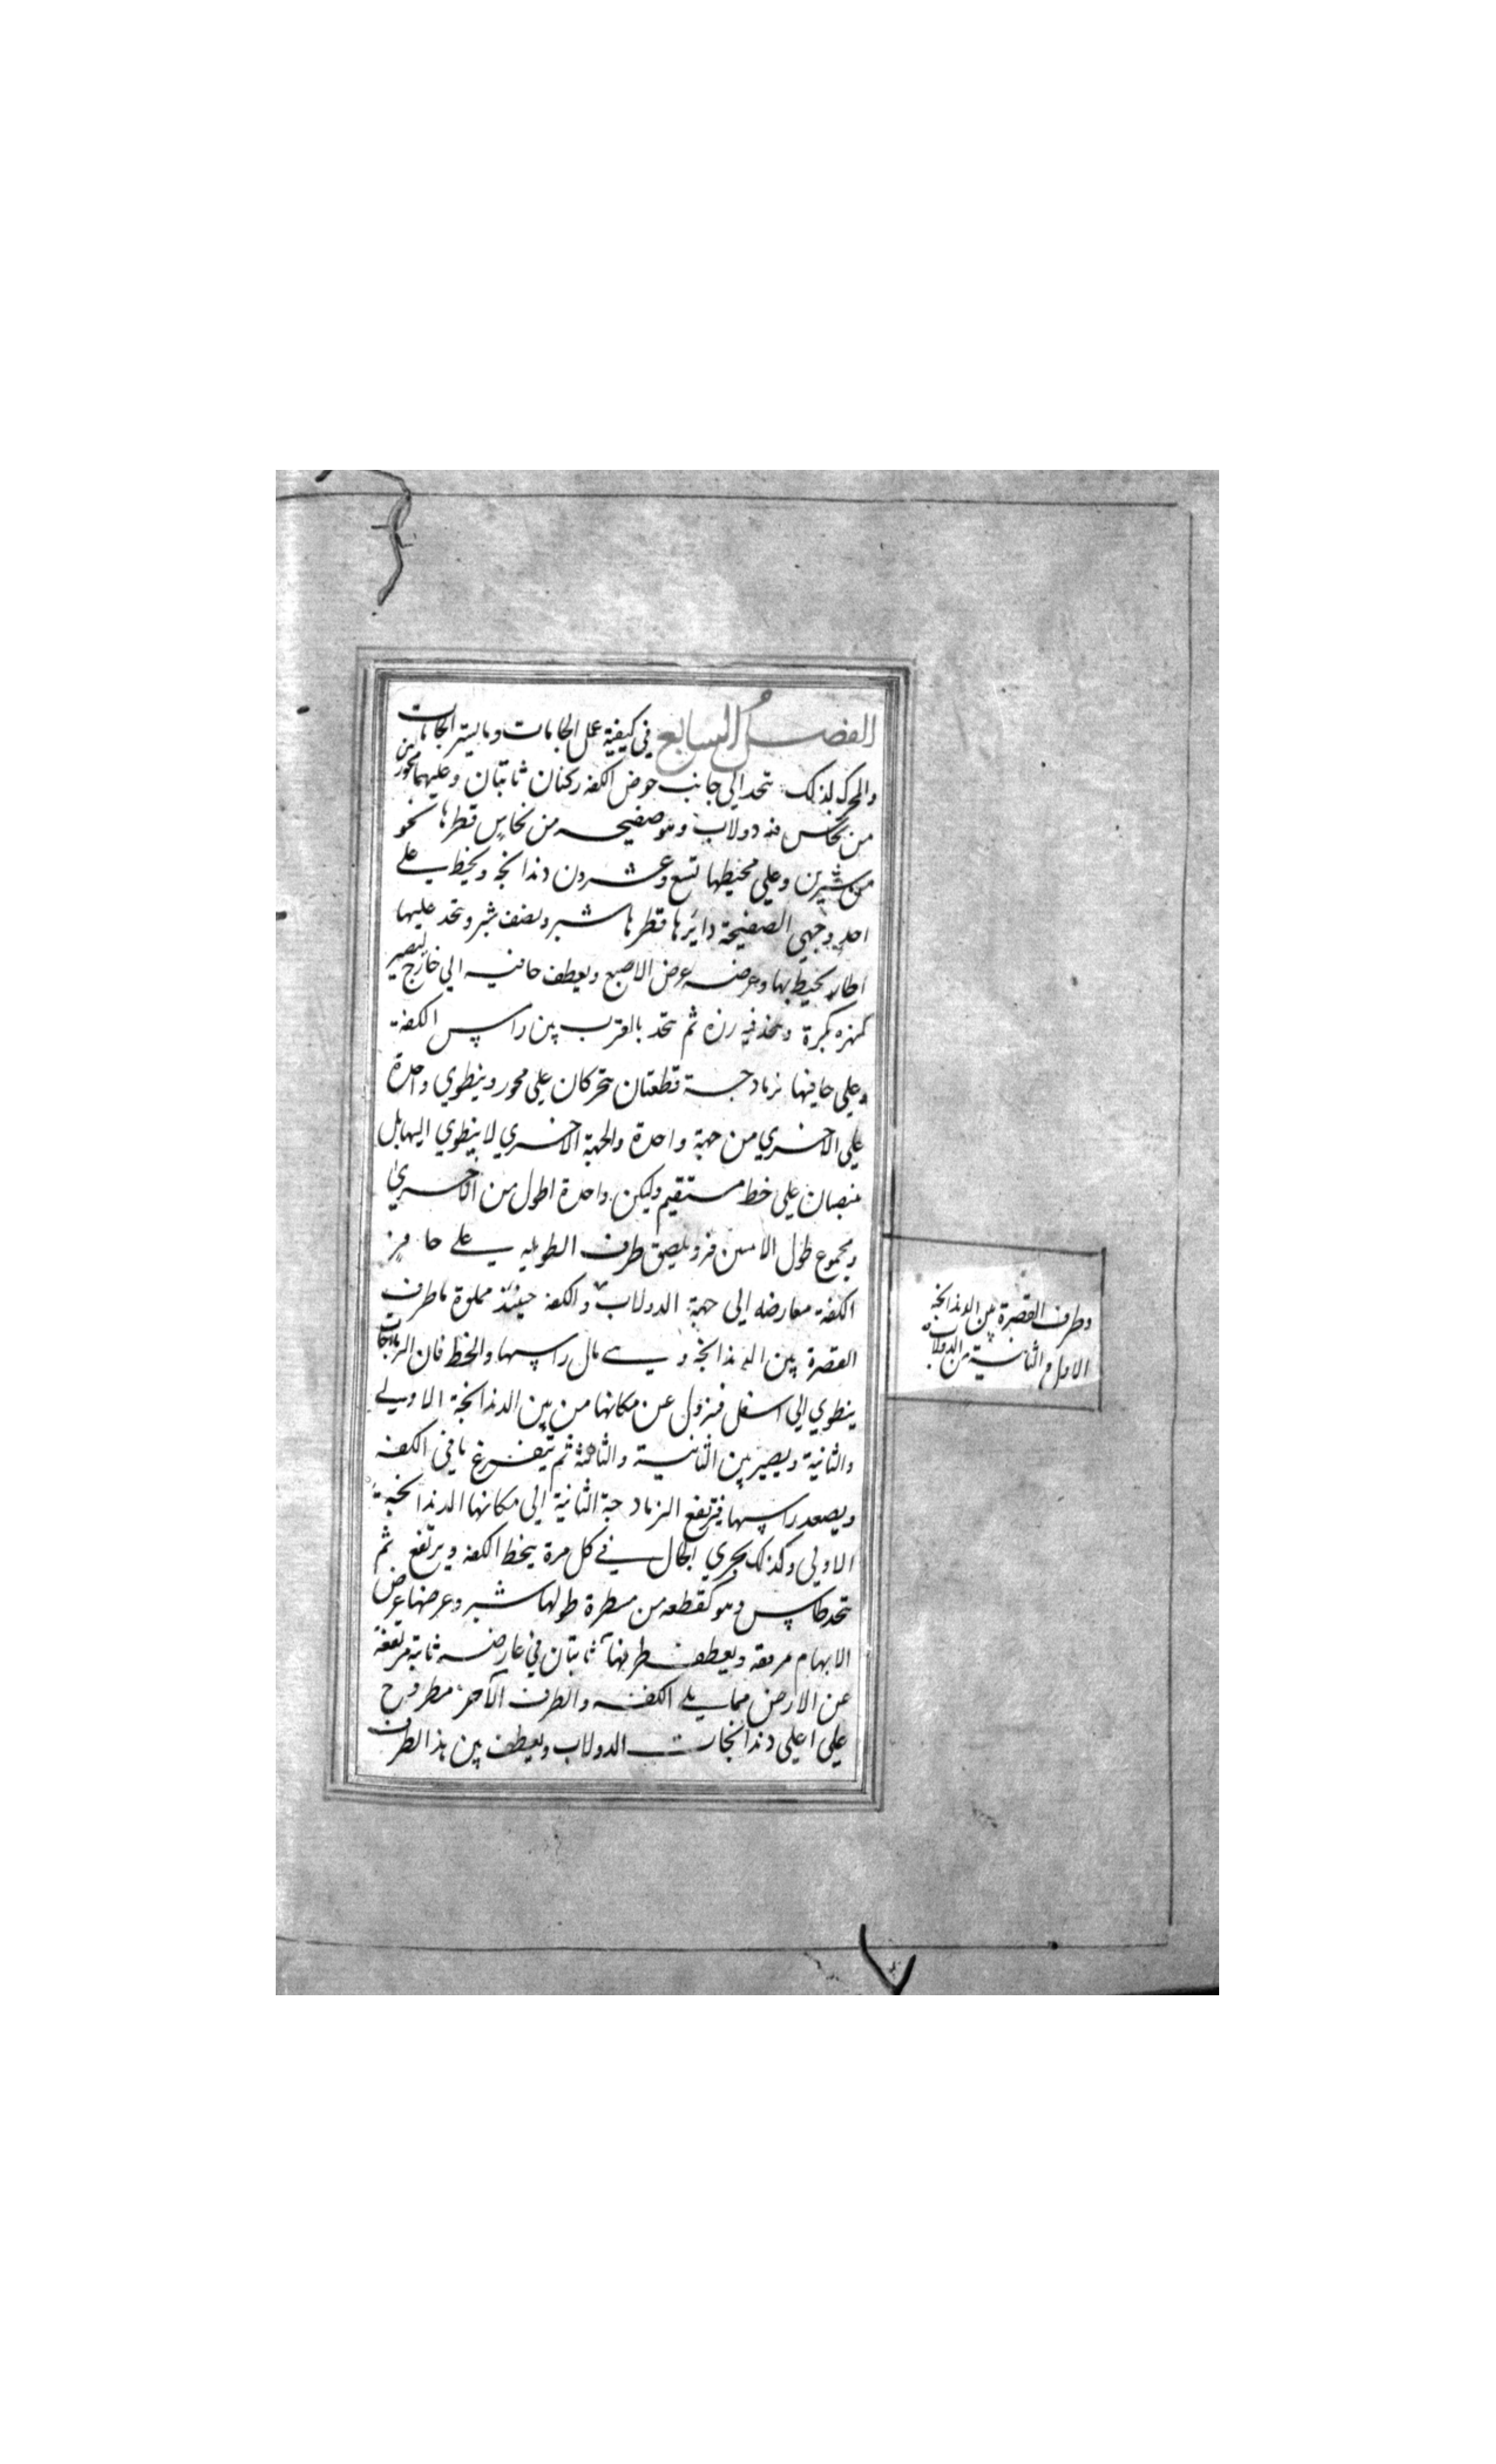 الفصل السابع في كيفية عمل الجامات وما يستر الجامات
والمحرك لذلك يتخد الي جانب حوض الكفه ركنان ثابتان وعليهما محور
من نحاس فيه دولاب وهو صفيحه من نحاس قطرها نحو
من شبرين وعلي محيطها تسع وعشرون دندانجه ويخط علي
احد وجهي الصفيحة دائرها قطرها شبر ونصف شبر ويتخد عليها
اطار يحيط بها وعرضه عرض الاصبع ويعطف حافتيه الي خارج ليصير
بكرة ويتخذ فيه رزه ثم يتخد بالقرب من راس الكفة
وعلي حافيها نرمادجة قطعتان يتحركان علي محور وينطوي واحدة
علي الاخري من جهة واحدة والجهة الاخري لا ينطوي اليها بل
منصبان علي خط مستقيم وليكن واحدة اطول من الاخري
ومجموع طول الاثنين فتر ويلصق طرف الطويله علي حافة
الكفة معارضه الي جهة الدولاب والكفه حينئذ مملوة ما طرف
القصرة بين الدندانجة ومتي مال راسها وانخط فان النرمادجات
ينطوي الي اسفل فتزول عن مكانها من بين الدندانجة الاولي
والثانية ويصير بين الثانية والثالثة ثم يتفرغ ما في الكفه
ويصعد راسها فيرتفع النرمادجة الثانية الي مكانها الدندانجة
الاولي وكذلك يجري الحال في كل مرة ينخط الكفه ويرتفع ثم
يتخد طاس وهو كقطعه من مسطرة طولها شبر وعرضها عرض
الابهام مرققه ويعطف طرفها ثابتان في عارضه ثابة مرتفعة
عن الارض مما يلي الكفه والطرف الآخر مطروح
علي اعلي دندانجات الدولاب ويعطف بين هذا الطرف
وطرف القصرة بين الدندانجة
الاول والثانية من الدولاب